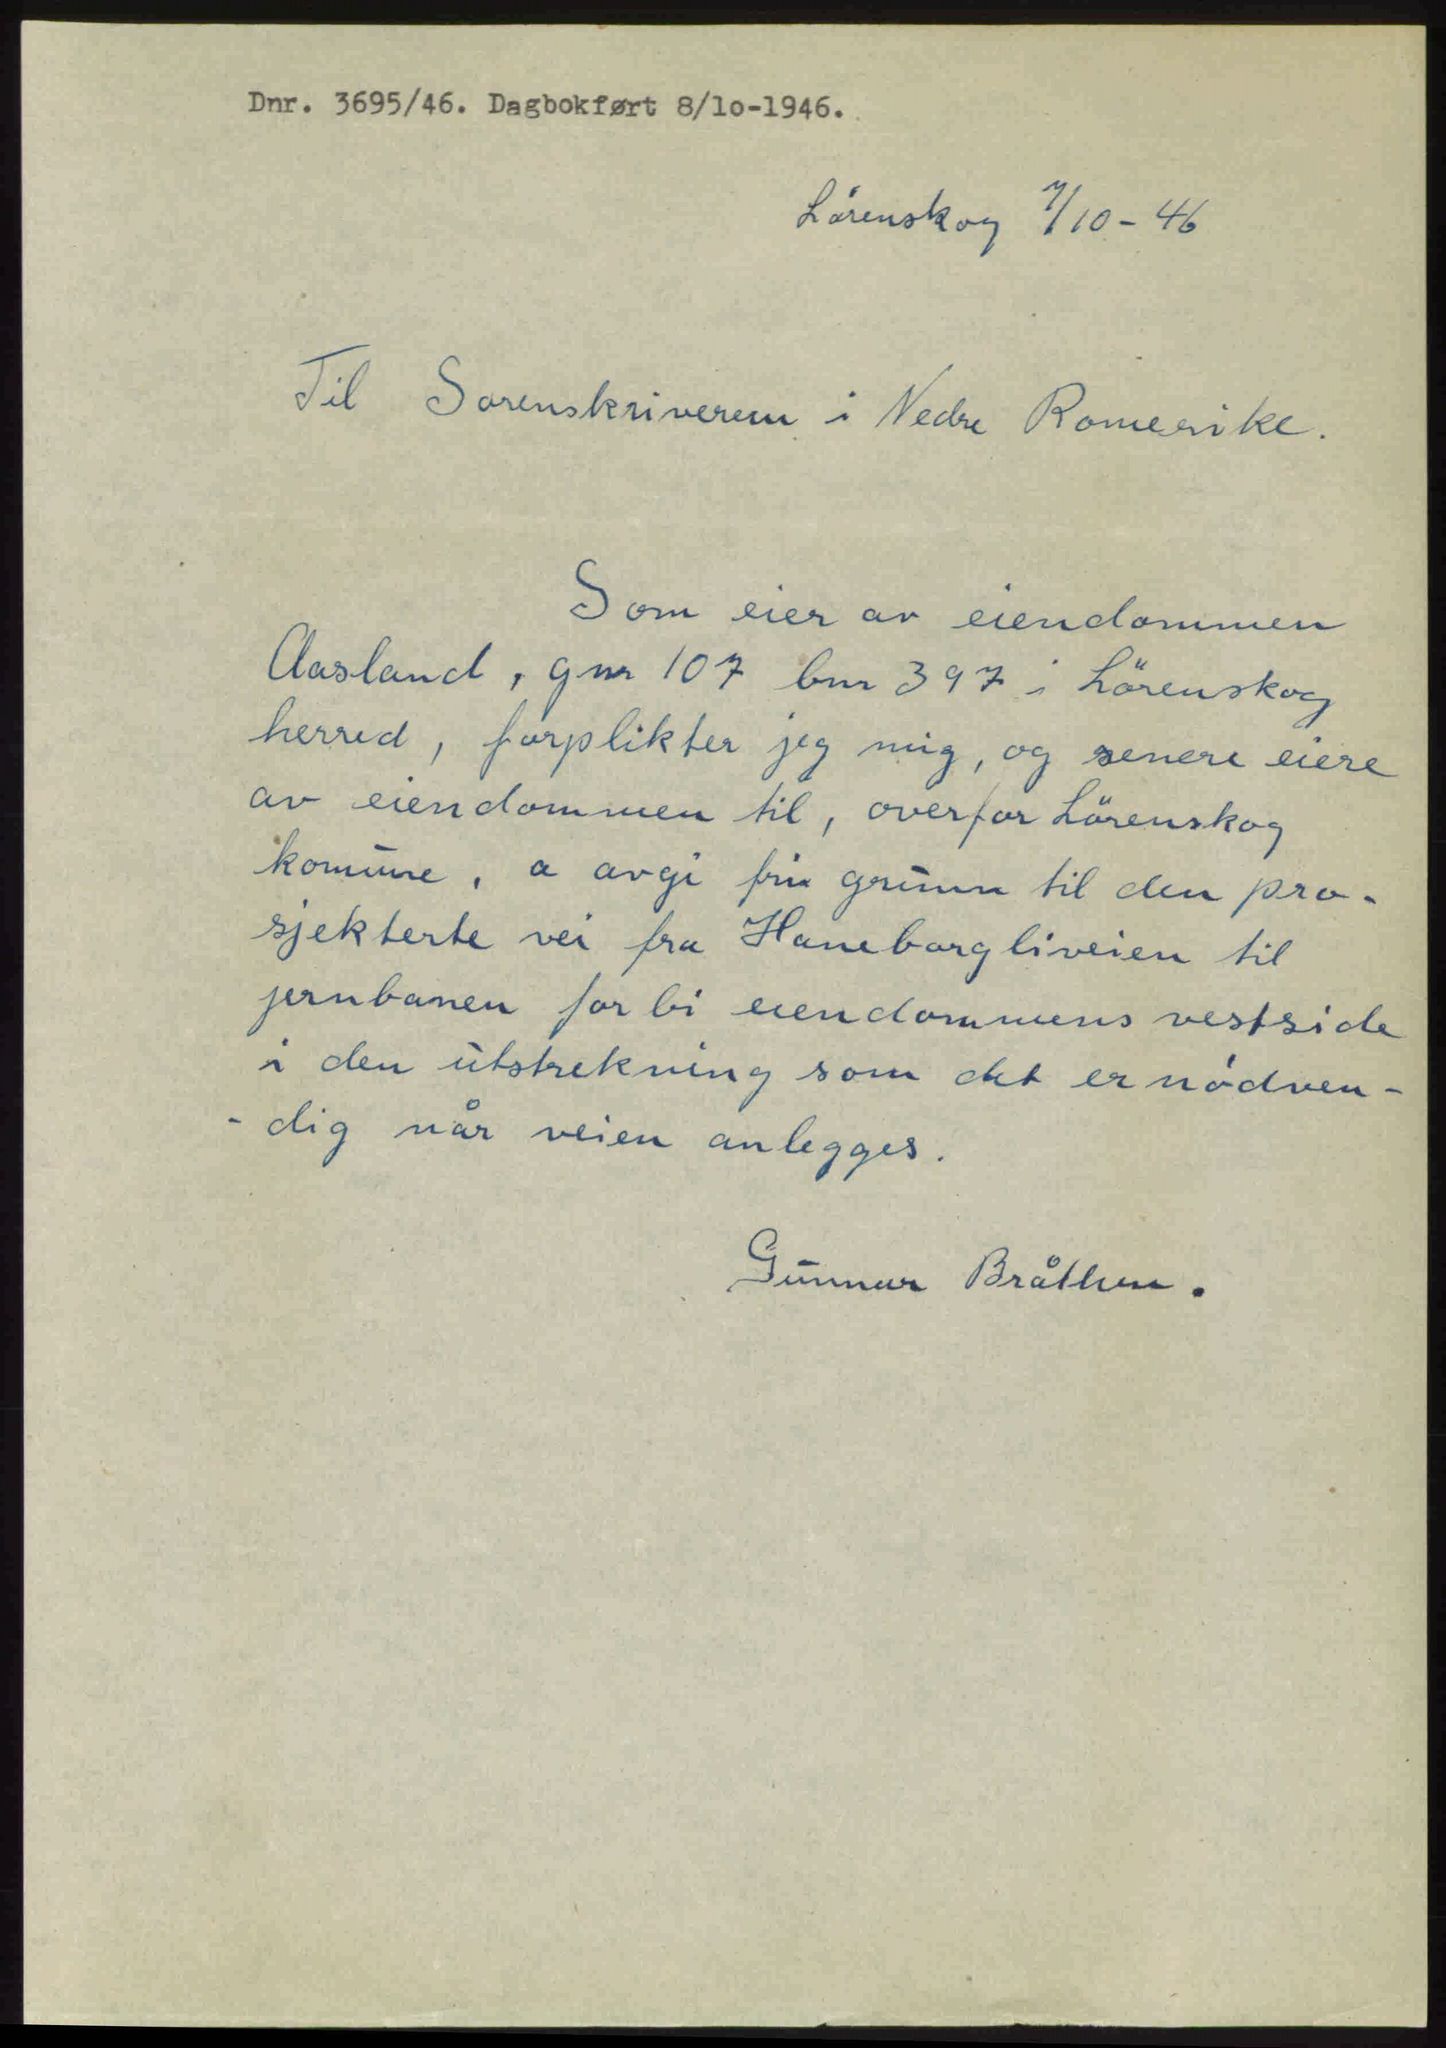 Dnr. 3695/46. Dagbokført 8/lo-1946.
Lörenskog 7/10-46
Til Sorenskriveren i Nedre Romerike.
Som eier av eiendommen
Aasland, gnr 107 bnr 397 i Lörenskog
herred, forplikter jeg mig, og senere eiere
av eiendommen til, overfor Lörenskog
komune, a avgi fri grunn til den pro-
sjekterte vei fra Haneborgliveien til
jernbanen forbi eiendommens vestside
i den utstrekning som det er nödven-
-dig når veien anlegges.
Gunnar Bråthen.